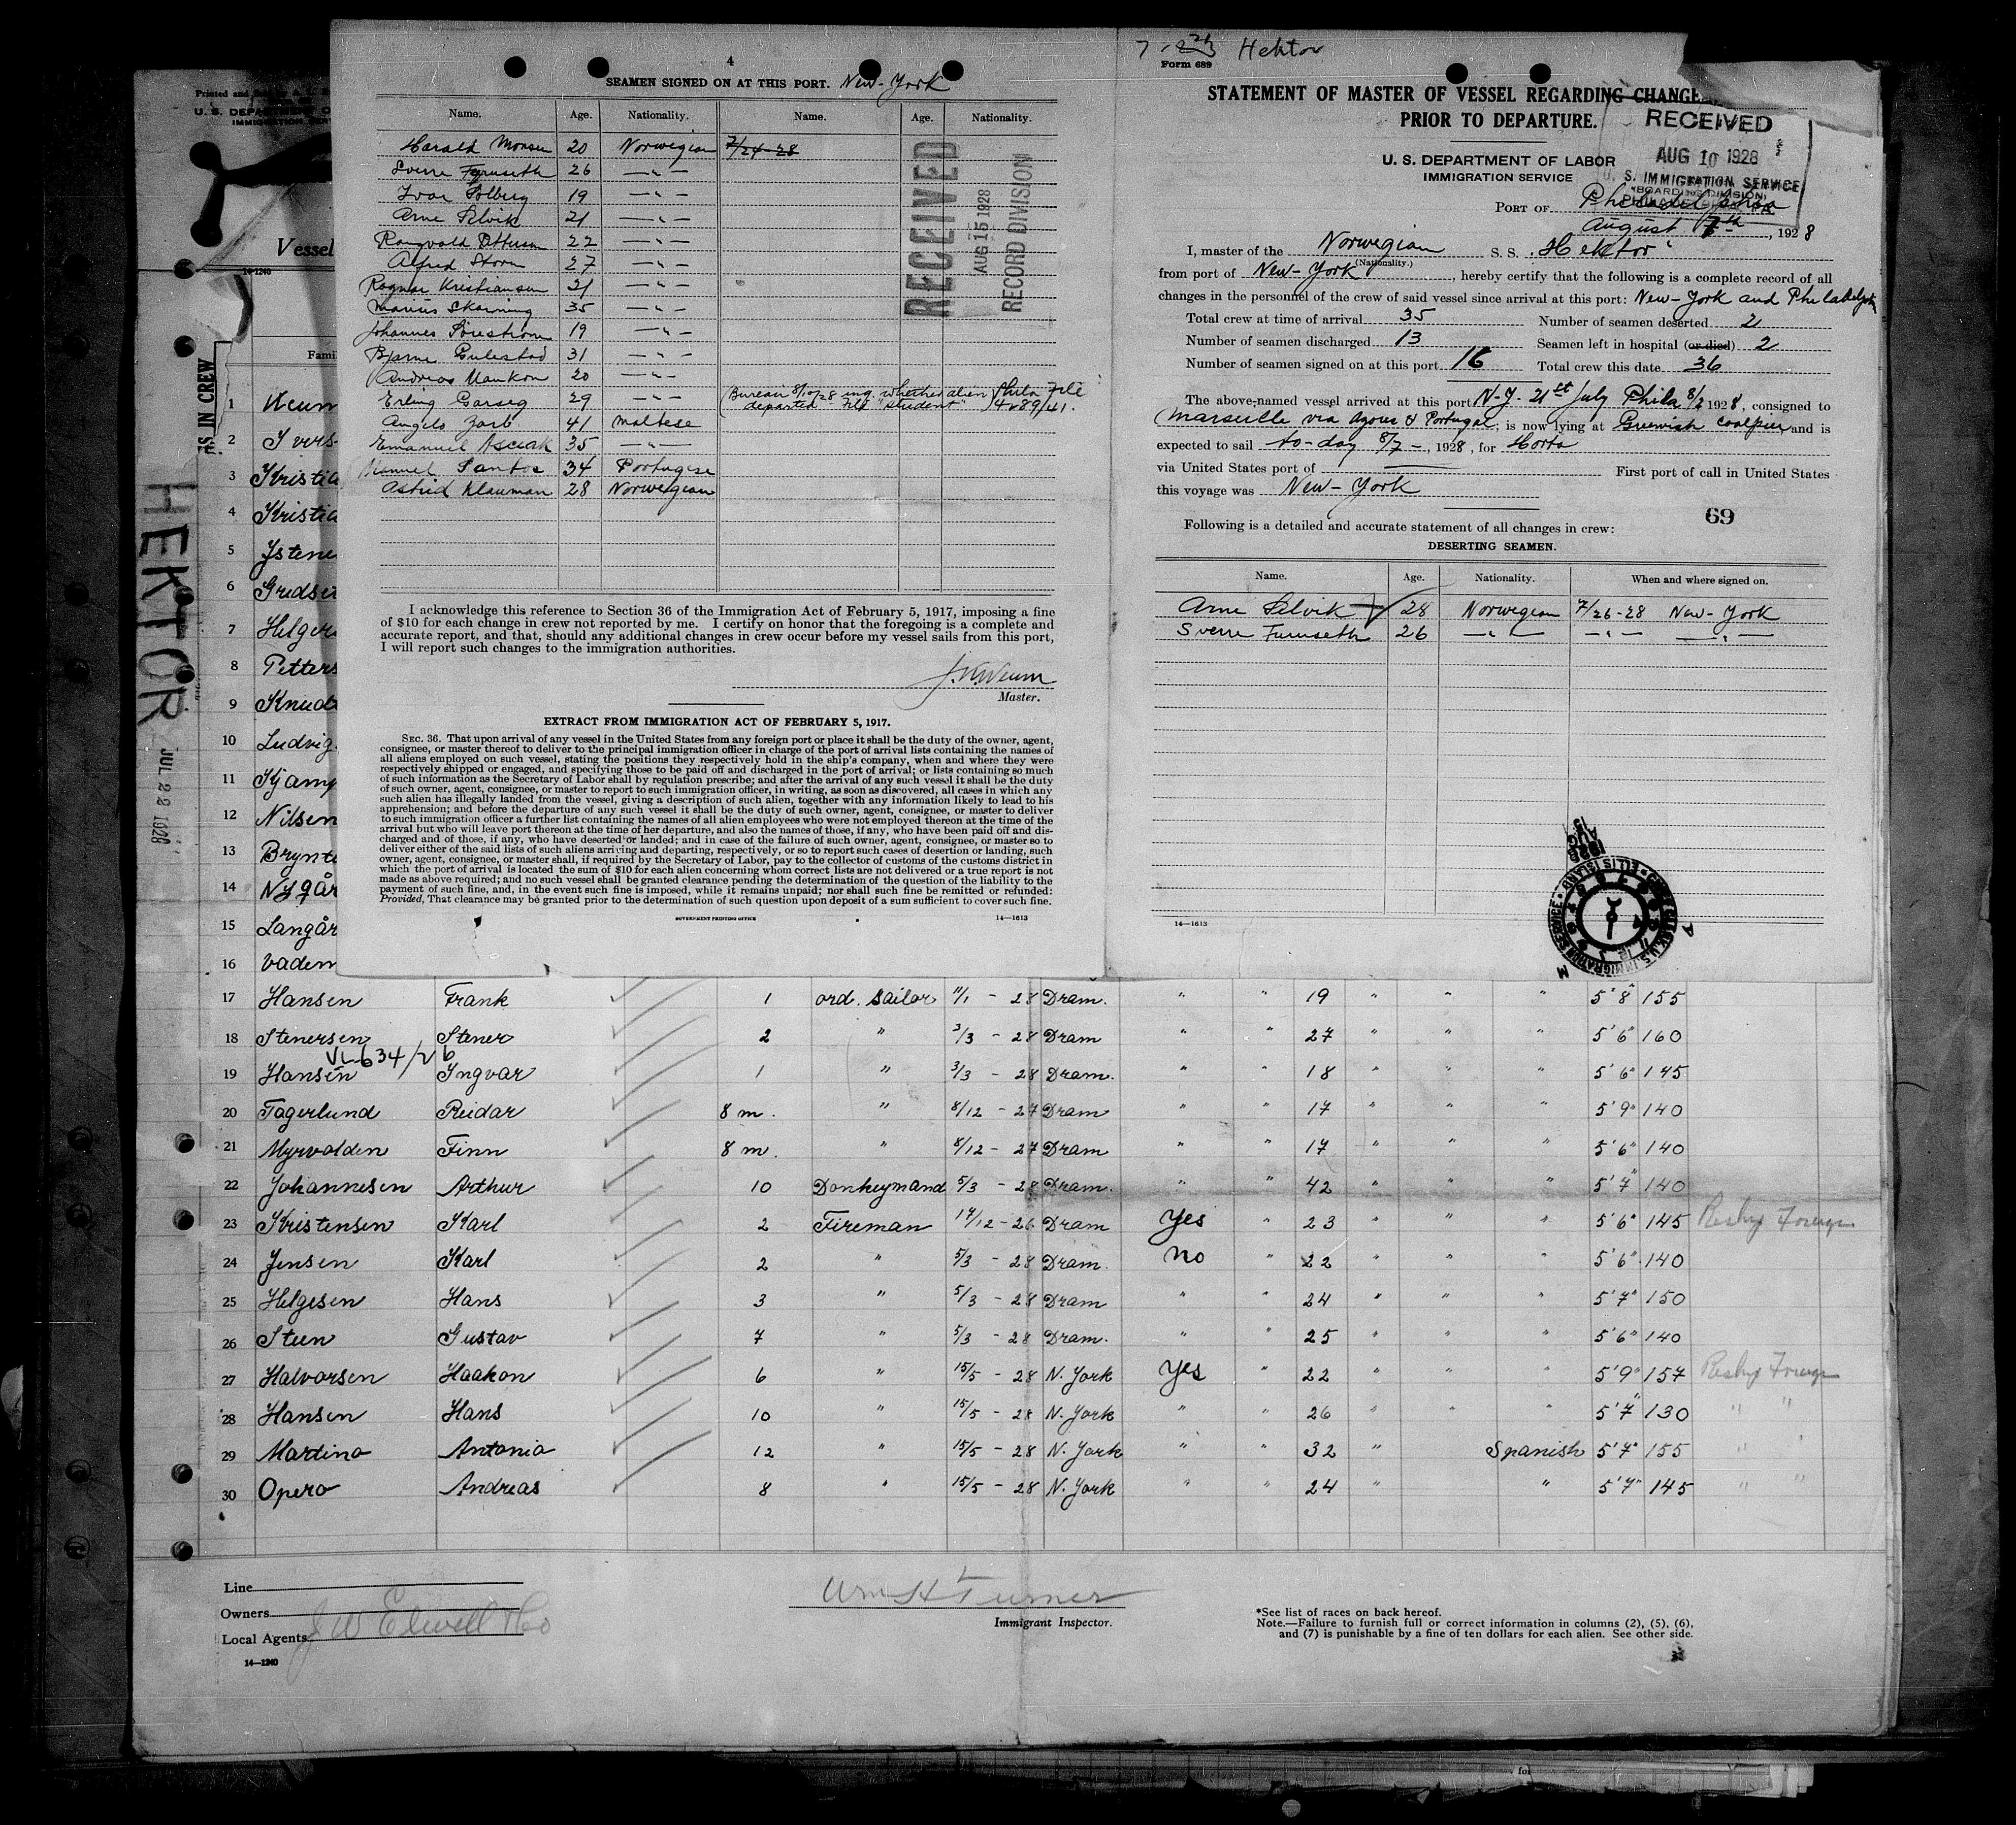 4
SEAMEN SIGNED ON AT THIS PORT. New-York
Name. Age. Nationality. Name. Age. Nationality.
Harald Monsen 20 Norwegian 7/24-28
Sverre Furuseth 26 —"—
Ivar Solberg 19 —"—
Arne Selvik 21 —"—
Rangvald Pettersen 22 —"—
Alfred Storm 27 —"—
Ragnar Kristiansen 21 —"—
Marius Skarning 35 —"—
Johannes 19 —"—
Bjarne Gulestad 31 —"—
Andreas Maukon 20 —"—
Erling Garseg 29 —"— Bureau 8/10/28 inq. whether alien Phila File
departed File "student" 4289/41.
Angelo Zarb 41 Maltese
Emanuel Asciak 35 —"—
Manuel Santos 34 Portugese
Astrid Klauman 28 Norwegian
RECEIVED
AUG 15 1928
RECORD DIVISION
I acknowledge this reference to Section 36 of the Immigration Act of February 5, 1917, imposing a fine
of $10 for each change in crew not reported by me. I certify on honor that the foregoing is a complete and
accurate report, and that, should any additional changes in crew occur before my vessel sails from this port,
I will report such changes to the immigration authorities.
Master.
EXTRACT FROM IMMIGRATION ACT OF FEBRUARY 5, 1917.
SEC. 36. That upon arrival of any vessel in the United States from any foreign port or place it shall be the duty of the owner, agent,
consignee, or master thereof to deliver to the principal immigration officer in charge of the port of arrival lists containing the names of
all aliens employed on such vessel, stating the positions they respectively hold in the ship's company, when and where they were
respectively shipped or engaged, and specifying those to be paid off and discharged in the port of arrival; or lists containing so much
of such information as the Secretary of Labor shall by regulation prescribe; and after the arrival of any such vessel it shall be the duty
of such owner, agent, consignee, or master to report to such immigration officer, in writing, as soon as discovered, all cases in which any
such alien has illegally landed from the vessel, giving a description of such alien, together with any information likely to lead to his
apprehension; and before the departure of any such vessel it shall be the duty of such owner, agent, consignee, or master to deliver
to such immigration officer a further list containing the names of all alien employees who were not employed thereon at the time of the
arrival but who will leave port thereon at the time of her departure, and also the names of those, if any, who have been paid off and dis-
charged and of those, if any, who have deserted or landed; and in case of the failure of such owner, agent, consignee, or master so to
deliver either of the said lists of such aliens arriving and departing, respectively, or so to report such cases of desertion or landing, such
owner, agent, consignee, or master shall, if required by the Secretary of Labor, pay to the collector of customs of the customs district in
which the port of arrival is located the sum of $10 for each alien concerning whom correct lists are not delivered or a true report is not
made as above required; and no such vessel shall be granted clearance pending the determination of the question of the liability to the
payment of such fine, and, in the event such fine is imposed, while it remains unpaid; nor shall such fine be remitted or refunded:
Provided, That clearance may be granted prior to the determination of such question upon deposit of a sum sufficient to cover such fine.
GOVERNMENT PRINTING OFFICE 14—1613
Hektor
Form 689
STATEMENT OF MASTER OF VESSEL REGARDING CHANGE
PRIOR TO DEPARTURE.
RECEIVED
AUG 10 1928
U. S. IMMIGRATION SERVICE
BOARDING DIVISION
U. S. DEPARTMENT OF LABOR
IMMIGRATION SERVICE
PORT OF Philadelphia
August 7th, 1928
I, master of the Norwegian S. S. "Hektor"
(Nationality.)
from port of New-York, hereby certify that the following is a complete record of all
changes in the personnel of the crew of said vessel since arrival at this port: New-York and Philadelphia
Total crew at time of arrival 35 Number of seamen deserted 2
Number of seamen discharged 13 Seamen left in hospital (or died) 2
Number of seamen signed on at this port 16 Total crew this date 36
The above-named vessel arrived at this port N-Y. 21st July Phila 8/2 1928, consigned to
Marseille via Azores & Portugal; is now lying at Greenwich coalpier and is
expected to sail to-day 8/7 -, 1928, for Horta
via United States port of — First port of call in United States
this voyage was New-York
69
Following is a detailed and accurate statement of all changes in crew:
DESERTING SEAMEN.
Name. Age. Nationality. When and where signed on.
Arne Selvik 28 Norwegian 7/26-28 New-York
Sverre Furuseth 26 —"— —"— —"—
14—1613
U.S. IMMIGRATION SERVICE ELLIS ISLAND
AUG 15 1928
Printed and
U. S. DEPARTMENT O
IMMIGRATION SER
Vessel
14-1240
Fami
S IN CREW
HEKTOR
JUL 22 1928
1 Weum
2 Ivers
3 Kristia
4 Kristia
5 Ystene
6 Gredse
7 Helger
8 Petters
9 Knud
10 Ludvig
11 Kjamp
12 Nilsen
13 Brynt
14 Nygår
15 Langår
16 Vadem
17 Hansen Frank 1 ord. Sailor 11/1 - 28 Dram. " " 19 " " " 5'8" 155
18 Stenersen Stener 2 " 3/3 - 28 Dram " " 27 " " " 5'6" 160
VL 634/26
19 Hansen Ingvar 1 " 3/3 - 28 Dram. " " 18 " " " 5'6" 145
20 Fagerlund Reidar 8 m. " 8/12 - 27 Dram " " 17 " " " 5'9" 140
21 Myrvolden Finn 8 m. " 8/12 - 27 Dram " " 17 " " " 5'6" 140
22 Johannesen Arthur 10 Donkeymand 5/3 - 28 Dram. " " 42 " " " 5'7" 140
23 Kristensen Karl 2 Fireman 14/12 - 26 Dram Yes " 23 " " " 5'6" 145 Reship Foreign
24 Jensen Karl 2 " 5/3 - 28 Dram. no " 22 " " " 5'6" 140
25 Helgesen Hans 3 " 5/3 - 28 Dram " " 24 " " " 5'7" 150
26 Steen Gustav 7 " 5/3 - 28 Dram. " " 25 " " " 5'6" 140
27 Halvorsen Haakon 6 " 15/5 - 28 N. York Yes " 22 " " " 5'9" 157 Reship Foreign
28 Hansen Hans 10 " 15/5 - 28 N. York " " 26 " " " 5'7" 130 " "
29 Martino Antonio 12 " 15/5 - 28 N. York " " 32 " Spanish 5'7" 155 " "
30 Opero Andreas 8 " 15/5 - 28 N. York " " 24 " " 5'7" 145 " "
Line
Owners
Local Agents J W Elwell & Co
14—1240
Wm H Turner
Immigrant Inspector.
*See list of races on back hereof.
Note.—Failure to furnish full or correct information in columns (2), (5), (6),
and (7) is punishable by a fine of ten dollars for each alien. See other side.
for